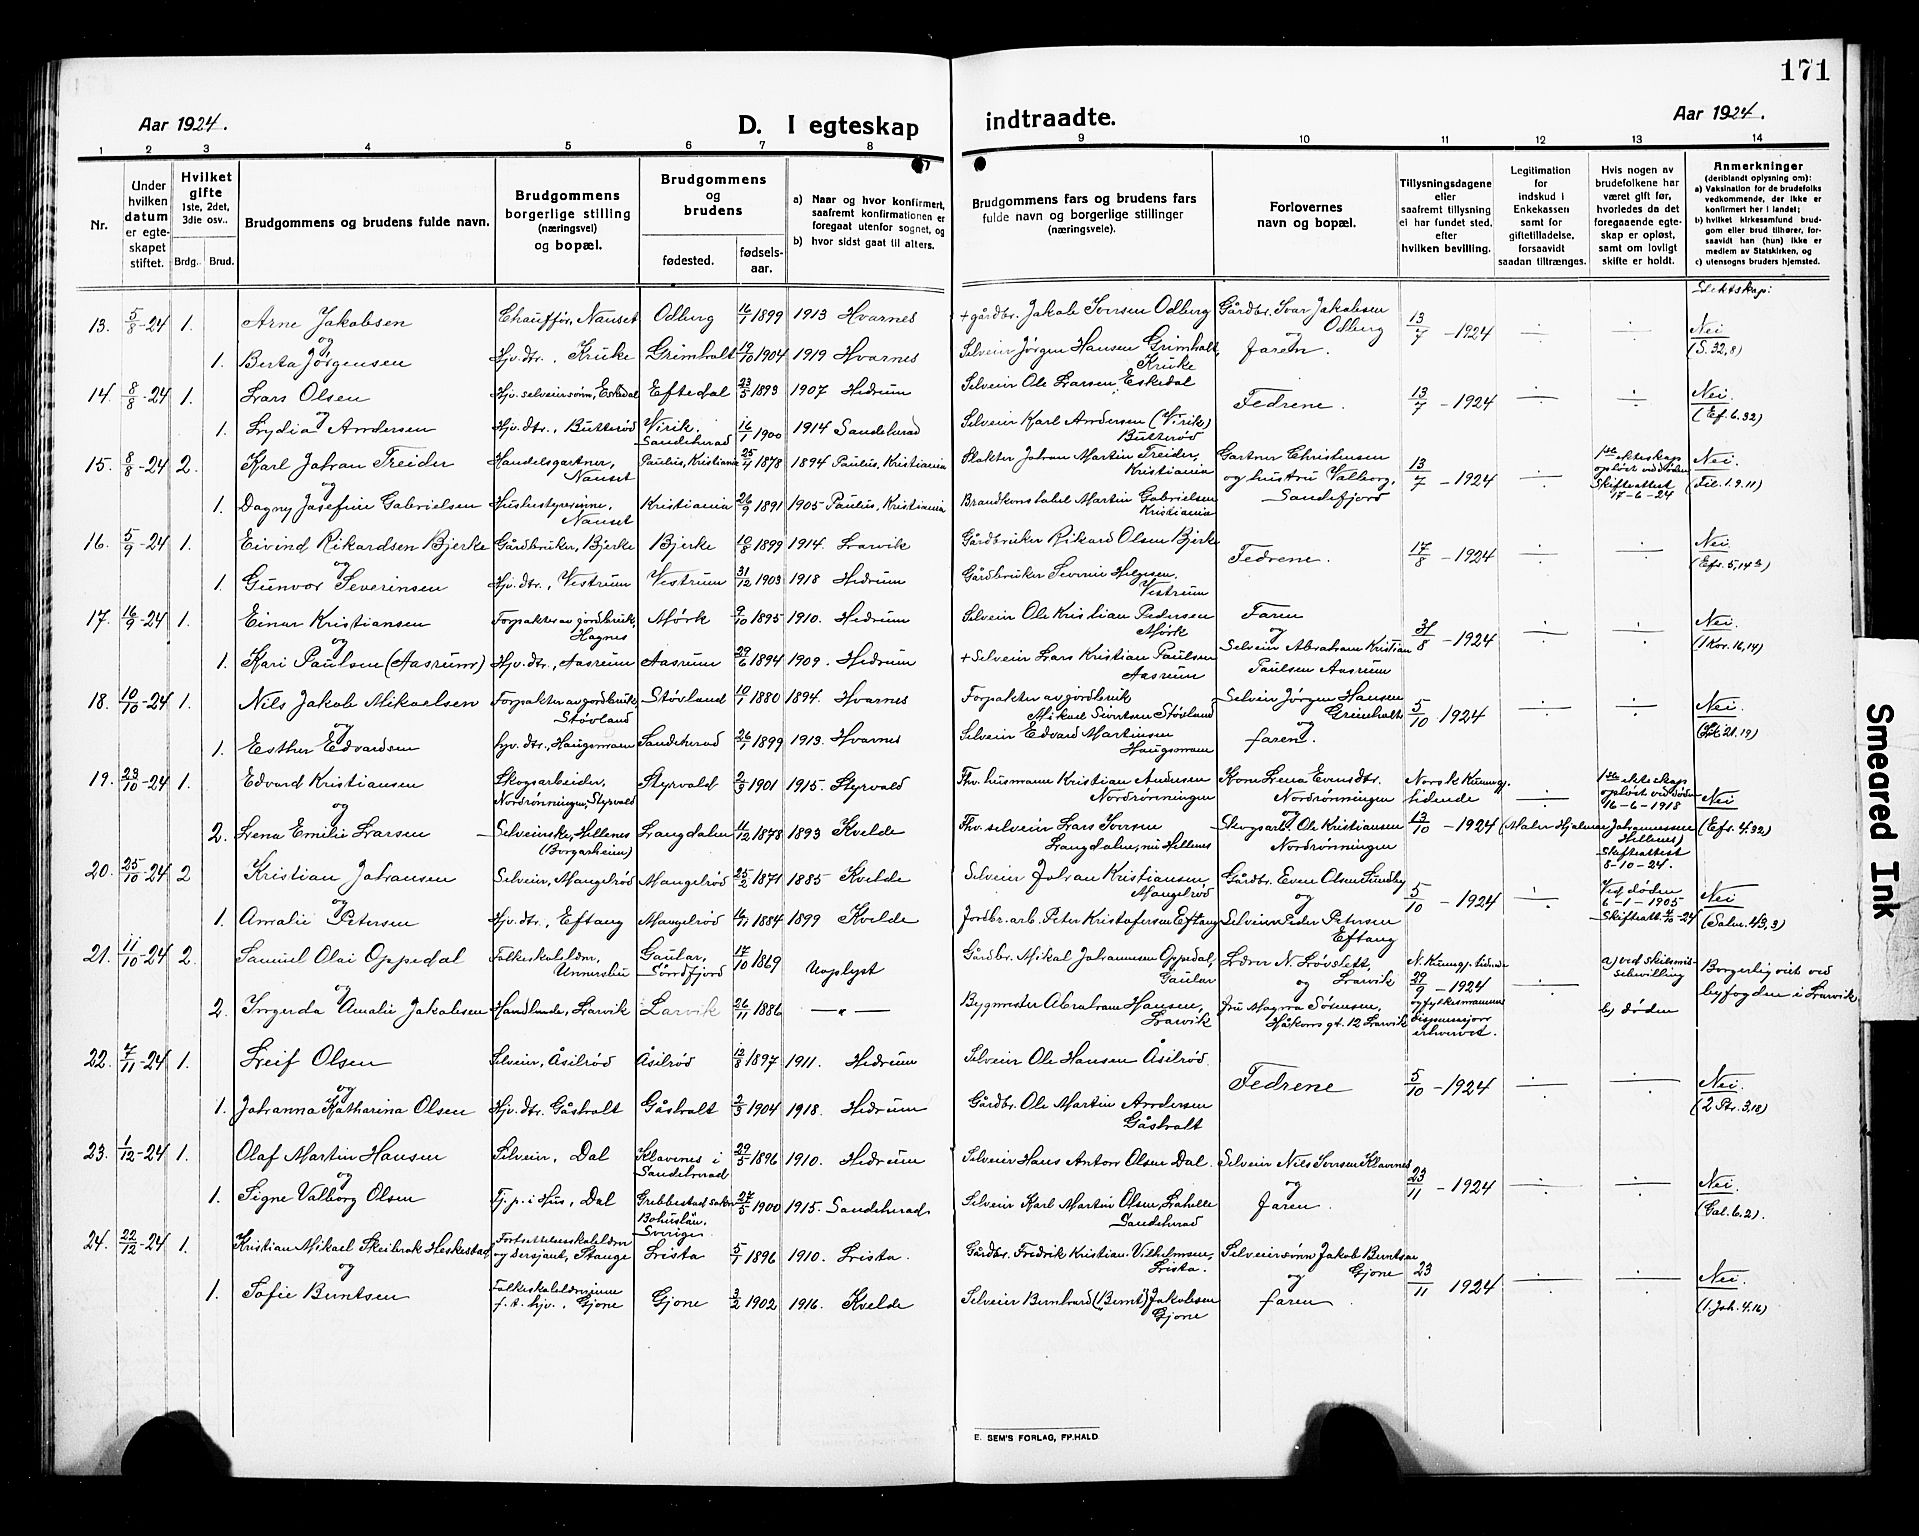 171
Aar 1924.
D. I egteskap
indtraadte.
Aar 1924.
1 2 3 4 5 6 7 8 9 10 11 12 13 14
Nr.
Under hvilken datum er egteskapet stiftet.
Hvilket gifte 1ste, 2det, 3die osv..
Brdg. Brud.
Brudgommens og brudens fulde navn.
Brudgommens borgerlige stilling (næringsvei) og bopæl.
Brudgommens og brudens
fødested. fødsels-aar.
a) Naar og hvor konfirmert, saafremt konfirmationen er foregaat utenfor sognet, og
b) hvor sidst gaat til alters.
Brudgommens fars og brudens fars fulde navn og borgerlige stillinger (næringsveie).
Forlovernes navn og bopæl.
Tillysningsdagene eller saafremt tillysning ei har fundet sted, efter hvilken bevilling.
Legitimation for indskud i Enkekassen samt for giftetilladelse, forsaavidt saadan tiltrænges.
Hvis nogen av brudefolkene har været gift før, hvorledes da det foregaaende egteskap er opløst, samt om lovligt skifte er holdt.
Anmerkninger (deriblandt oplysning om):
a) Vaksination for de brudefolks vedkommende, der ikke er konfirmert her i landet;
b) hvilket kirkesamfund brudgom eller brud tilhører, forsaavidt han (hun) ikke er medlem av Statskirken, og
c) utensogns bruders hjemsted.
Slektskap:
13. 5/8-24 1. Arne Jakobsen Chauffør, Nauset Odberg 16/1 1899 1913 Hvarnes + gårdbr. Jakob Iversen Odberg Gårdbr. Ivar Jakobsen Odberg 13/7 - 1924 Nei
og
1. Berta Jørgensen Hjv. dtr., Kruke Grimholt 19/10 1904 1919 Hvarnes Selveier Jørgen Hansen Grimholt, Kruke og Faren. (S. 32,8)
14. 8/8-24 1. Lars Olsen Hjv. selveiersønn, Eskedal Eftedal 23/5 1893 1907 Hedrum Selveier Ole Larsen Eskedal Fedrene. 13/7 - 1924 Nei
og
1. Lydia Andersen Hjv. dtr., Butterød Virik, Sandeherad 16/1 1900 1914 Sandeherad Selveier Karl Andersen (Virik) Butterød (Ef. 6.32)
15. 8/8-24 2. Karl Johan Treider Handelsgartner, Nauset Paulus, Kristiania 25/4 1878 1894 Paulus, Kristiania Slakter Johan Martin Treider, Kristiania Gartner Christensen og hustru Valborg, Sandefjord 13/7 - 1924 1ste ekteskap opløst ved døden Skifteattest 17-6-24 Nei. (Fil. 1.9.11)
og
1. Dagny Josefine Gabrielsen Husbestyrerinne, Nauset Kristiania 26/9 1891 1905 Paulus, Kristiania Brandkonstabel Martin Gabrielsen Kristiania
16. 5/9-24 1. Eivind Rikardsen Bjerke Gårdbruker, Bjerke Bjerke 10/8 1899 1914. Larvik Gårdbruker Rikard Olsen Bjerke Fedrene. 17/8 - 1924 Nei.
og
1. Gunvor Severinsen Hjv. dtr., Vestrum Vestrum 31/12 1903 1918 Hedrum Gårdbruker Severin Helgesen, Vestrum
17. 16/9-24 1. Einar Kristiansen Forpakter av jordbruk, Hagnes Mørk 9/10 1895 1910. Hedrum Selveier Ole Kristian Pedersen Mørk Faren og 31/8 - 1924 Nei.
og
1. Kari Paulsen (Aasrum) Hjv. dtr., Aasrum Aasrum 29/6 1894 1909. Hedrum + Selveier Lars Kristian Paulsen Aasrum Selveier Abraham Kristian Paulsen Aasrum (1 Kor. 16,14)
18. 10/10-24 1. Nils Jakob Mikaelsen Forpakter av jordbruk, Støvland Støvland 10/1 1880 1894. Hvarnes Forpakter av jordbruk Mikael Sivertsen Støvland Selveier Jørgen Hansen Grimholt 5/10 1924 Nei.
og
1. Esther Edvardsen hjv. dtr., Haugsmoen Sandeherad 26/1 1899 1913. Hvarnes Selveier Edvard Martinsen Haugsmoen og faren.
19. 23/10-24 1. Edvard Kristiansen Skogsarbeider, Nordrønningen, Styrvold Styrvold 2/9 1901 1915. Styrvold Fhv. husmann Kristian Andersen Nordrønningen Kone Lena Evensdtr. Nordrønningen Norsk Kunngj. tidende 1ste ekteskap opløst ved døden 16-6-1918 Nei
og
2. Lena Emilie Larsen Selveierske, Hellenes (Borgarheim) Langdalen 11/12 1878 1893 Kvelde Fhv. selveier Lars Iversen Langdalen, nu Hellenes og Skogsarb. Ole Kristiansen Nordrønningen 13/10 - 1924 (Maler Hjalmar Johannessen Hellenes) Skifteattest 8-10-24. (Efs. 4.32)
20. 25/10-24 2 Kristian Johansen Selveier, Mangelrød Mangelrød 25/2 1871 1885 Kvelde Selveier Johan Kristiansen, Mangelrød Gårdbr. Even Olsen Sundby og 5/10 - 1924 Ved døden 6-1-1905 Nei
og
1. Amalie Petersen Hjv. dtr., Eftang Mangelrød 16/11 1884 1899 Kvelde Jordbr. arb. Peter Kristofersen Eftang Selveier Peder Petersen Eftang (Salm. 43,3)
21. 11/10-24 2. Samuel Olai Oppedal Folkeskolelærer, Unneraker Gaular, Søndfjord 17/10 1869 Uoplyst Gårdbr. Mikal Johannesen Oppedal, Gaular Lærer N. Løvslett, Larvik N. Kunngj. tidende 29/9 - 1924 a) ved skilsmissebevilling Borgerlig viet ved byfogden i Larvik,
og
2. Ingerda Amalie Jakobsen Handlende, Larvik Larvik 26/11 1886 — " — Bygmester Abraham Hansen, Larvik og fru Magna Sørensen, Håkons gt. 12 Larvik og fylkesmannens dispensasjon erhvervet. b) døden
22. 7/11-24 1. Leif Olsen Selveier, Åsilrød Åsilrød 12/8 1897 1911. Hedrum Selveier Ole Hansen Åsilrød. Fedrene 5/10 - 1924 Nei.
og
1. Johanna Katharina Olsen Hjv. dtr. Gåsholt Gåsholt 2/5 1904 1918. Hedrum Gårdbr. Ole Martin Andersen Gåsholt
23. 1/12-24 1. Olaf Martin Hansen Selveier, Dal Klavenes i Sandeherad 29/5 1896 1910. Hedrum Selveier Hans Anton Olsen Dal. Selveier Nils Iversen Klavnes 23/11 - 1924 Nei.
og
1. Signe Valborg Olsen Tj. p. i Hus, Dal Grebbestad sokn Bohuslän, Sverige 27/5 1900 1915. Sandeherad Selveier Karl Martin Olsen, Lahelle Sandeherad og Faren. (Gal. 6.2)
24. 22/12-24 1. Kristian Mikael Skeibrok Heskestad Fortsettelsesskolelærer og sersjant, Stange Lista 5/1 1896 1910. Lista. Gårdbr. Fredrik Kristian Vilhelmsen, Lista. Selveiersønn Jakob Berntsen Gjone 23/11 1924 Nei.
og
1. Sofie Berntsen Folkeskolelærerinne f. t. hjv., Gjone Gjone 3/2 1902 1916. Kvelde Selveier Bernhard (Bernt) Jakobsen Gjone og faren (1. Joh. 4.16)
E. SEM'S FORLAG, FR.HALD
Smeared Ink